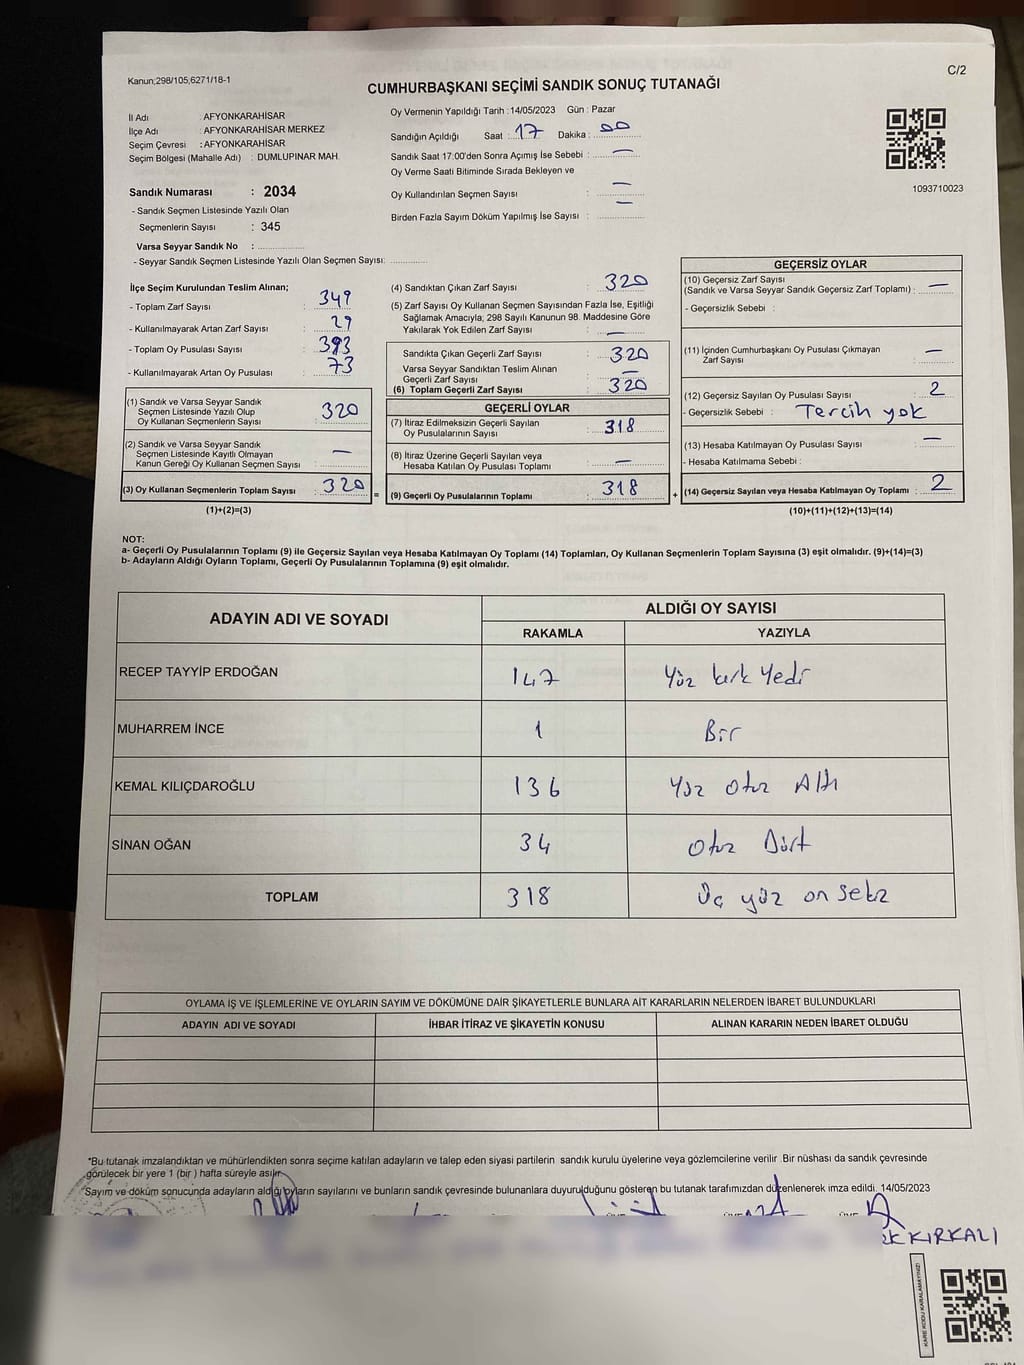 Kanun;298/105;6271/18-1
C/2
CUMHURBAŞKANI SEÇİMİ SANDIK SONUÇ TUTANAĞI
İl Adı : AFYONKARAHİSAR
İlçe Adı : AFYONKARAHİSAR MERKEZ
Seçim Çevresi : AFYONKARAHİSAR
Seçim Bölgesi (Mahalle Adı) : DUMLUPINAR MAH.
Sandık Numarası : 2034
- Sandık Seçmen Listesinde Yazılı Olan
Seçmenlerin Sayısı : 345
Varsa Seyyar Sandık No :
- Seyyar Sandık Seçmen Listesinde Yazılı Olan Seçmen Sayısı:
Oy Vermenin Yapıldığı Tarih : 14/05/2023 Gün : Pazar
Sandığın Açıldığı Saat : 17 Dakika : 00
Sandık Saat 17:00'den Sonra Açımış İse Sebebi : —
Oy Verme Saati Bitiminde Sırada Bekleyen ve
Oy Kullandırılan Seçmen Sayısı : —
Birden Fazla Sayım Döküm Yapılmış İse Sayısı : —
1093710023
İlçe Seçim Kurulundan Teslim Alınan;
- Toplam Zarf Sayısı : 349
- Kullanılmayarak Artan Zarf Sayısı : 29
- Toplam Oy Pusulası Sayısı : 393
- Kullanılmayarak Artan Oy Pusulası : 73
(1) Sandık ve Varsa Seyyar Sandık
Seçmen Listesinde Yazılı Olup
Oy Kullanan Seçmenlerin Sayısı : 320
(2) Sandık ve Varsa Seyyar Sandık
Seçmen Listesinde Kayıtlı Olmayan
Kanun Gereği Oy Kullanan Seçmen Sayısı : —
(3) Oy Kullanan Seçmenlerin Toplam Sayısı : 320
(1)+(2)=(3)
=
(4) Sandıktan Çıkan Zarf Sayısı : 320
(5) Zarf Sayısı Oy Kullanan Seçmen Sayısından Fazla İse, Eşitliği
Sağlamak Amacıyla; 298 Sayılı Kanunun 98. Maddesine Göre
Yakılarak Yok Edilen Zarf Sayısı : —
Sandıkta Çıkan Geçerli Zarf Sayısı : 320
Varsa Seyyar Sandıktan Teslim Alınan
Geçerli Zarf Sayısı : —
(6) Toplam Geçerli Zarf Sayısı : 320
GEÇERLİ OYLAR
(7) İtiraz Edilmeksizin Geçerli Sayılan
Oy Pusulalarının Sayısı : 318
(8) İtiraz Üzerine Geçerli Sayılan veya
Hesaba Katılan Oy Pusulası Toplamı : —
(9) Geçerli Oy Pusulalarının Toplamı : 318
+
GEÇERSİZ OYLAR
(10) Geçersiz Zarf Sayısı
(Sandık ve Varsa Seyyar Sandık Geçersiz Zarf Toplamı) : —
- Geçersizlik Sebebi :
(11) İçinden Cumhurbaşkanı Oy Pusulası Çıkmayan
Zarf Sayısı : —
(12) Geçersiz Sayılan Oy Pusulası Sayısı : 2
- Geçersizlik Sebebi : Tercih yok
(13) Hesaba Katılmayan Oy Pusulası Sayısı : —
- Hesaba Katılmama Sebebi :
(14) Geçersiz Sayılan veya Hesaba Katılmayan Oy Toplamı : 2
(10)+(11)+(12)+(13)=(14)
NOT:
a- Geçerli Oy Pusulalarının Toplamı (9) ile Geçersiz Sayılan veya Hesaba Katılmayan Oy Toplamı (14) Toplamları, Oy Kullanan Seçmenlerin Toplam Sayısına (3) eşit olmalıdır. (9)+(14)=(3)
b- Adayların Aldığı Oyların Toplamı, Geçerli Oy Pusulalarının Toplamına (9) eşit olmalıdır.
ADAYIN ADI VE SOYADI
ALDIĞI OY SAYISI
RAKAMLA YAZIYLA
RECEP TAYYİP ERDOĞAN 147 Yüz kırk Yedi
MUHARREM İNCE 1 Bir
KEMAL KILIÇDAROĞLU 136 Yüz otuz Altı
SİNAN OĞAN 34 otuz Dört
TOPLAM 318 Üç yüz on sekiz
OYLAMA İŞ VE İŞLEMLERİNE VE OYLARIN SAYIM VE DÖKÜMÜNE DAİR ŞİKAYETLERLE BUNLARA AİT KARARLARIN NELERDEN İBARET BULUNDUKLARI
ADAYIN ADI VE SOYADI İHBAR İTİRAZ VE ŞİKAYETİN KONUSU ALINAN KARARIN NEDEN İBARET OLDUĞU
*Bu tutanak imzalandıktan ve mühürlendikten sonra seçime katılan adayların ve talep eden siyasi partilerin sandık kurulu üyelerine veya gözlemcilerine verilir .Bir nüshası da sandık çevresinde
görülecek bir yere 1 (bir ) hafta süreyle asılır.
*Sayım ve döküm sonucunda adayların aldığı oyların sayılarını ve bunların sandık çevresinde bulunanlara duyurulduğunu gösteren bu tutanak tarafımızdan düzenlenerek imza edildi. 14/05/2023
KIRKALI
KARE KODU KARALAMAYINIZ!